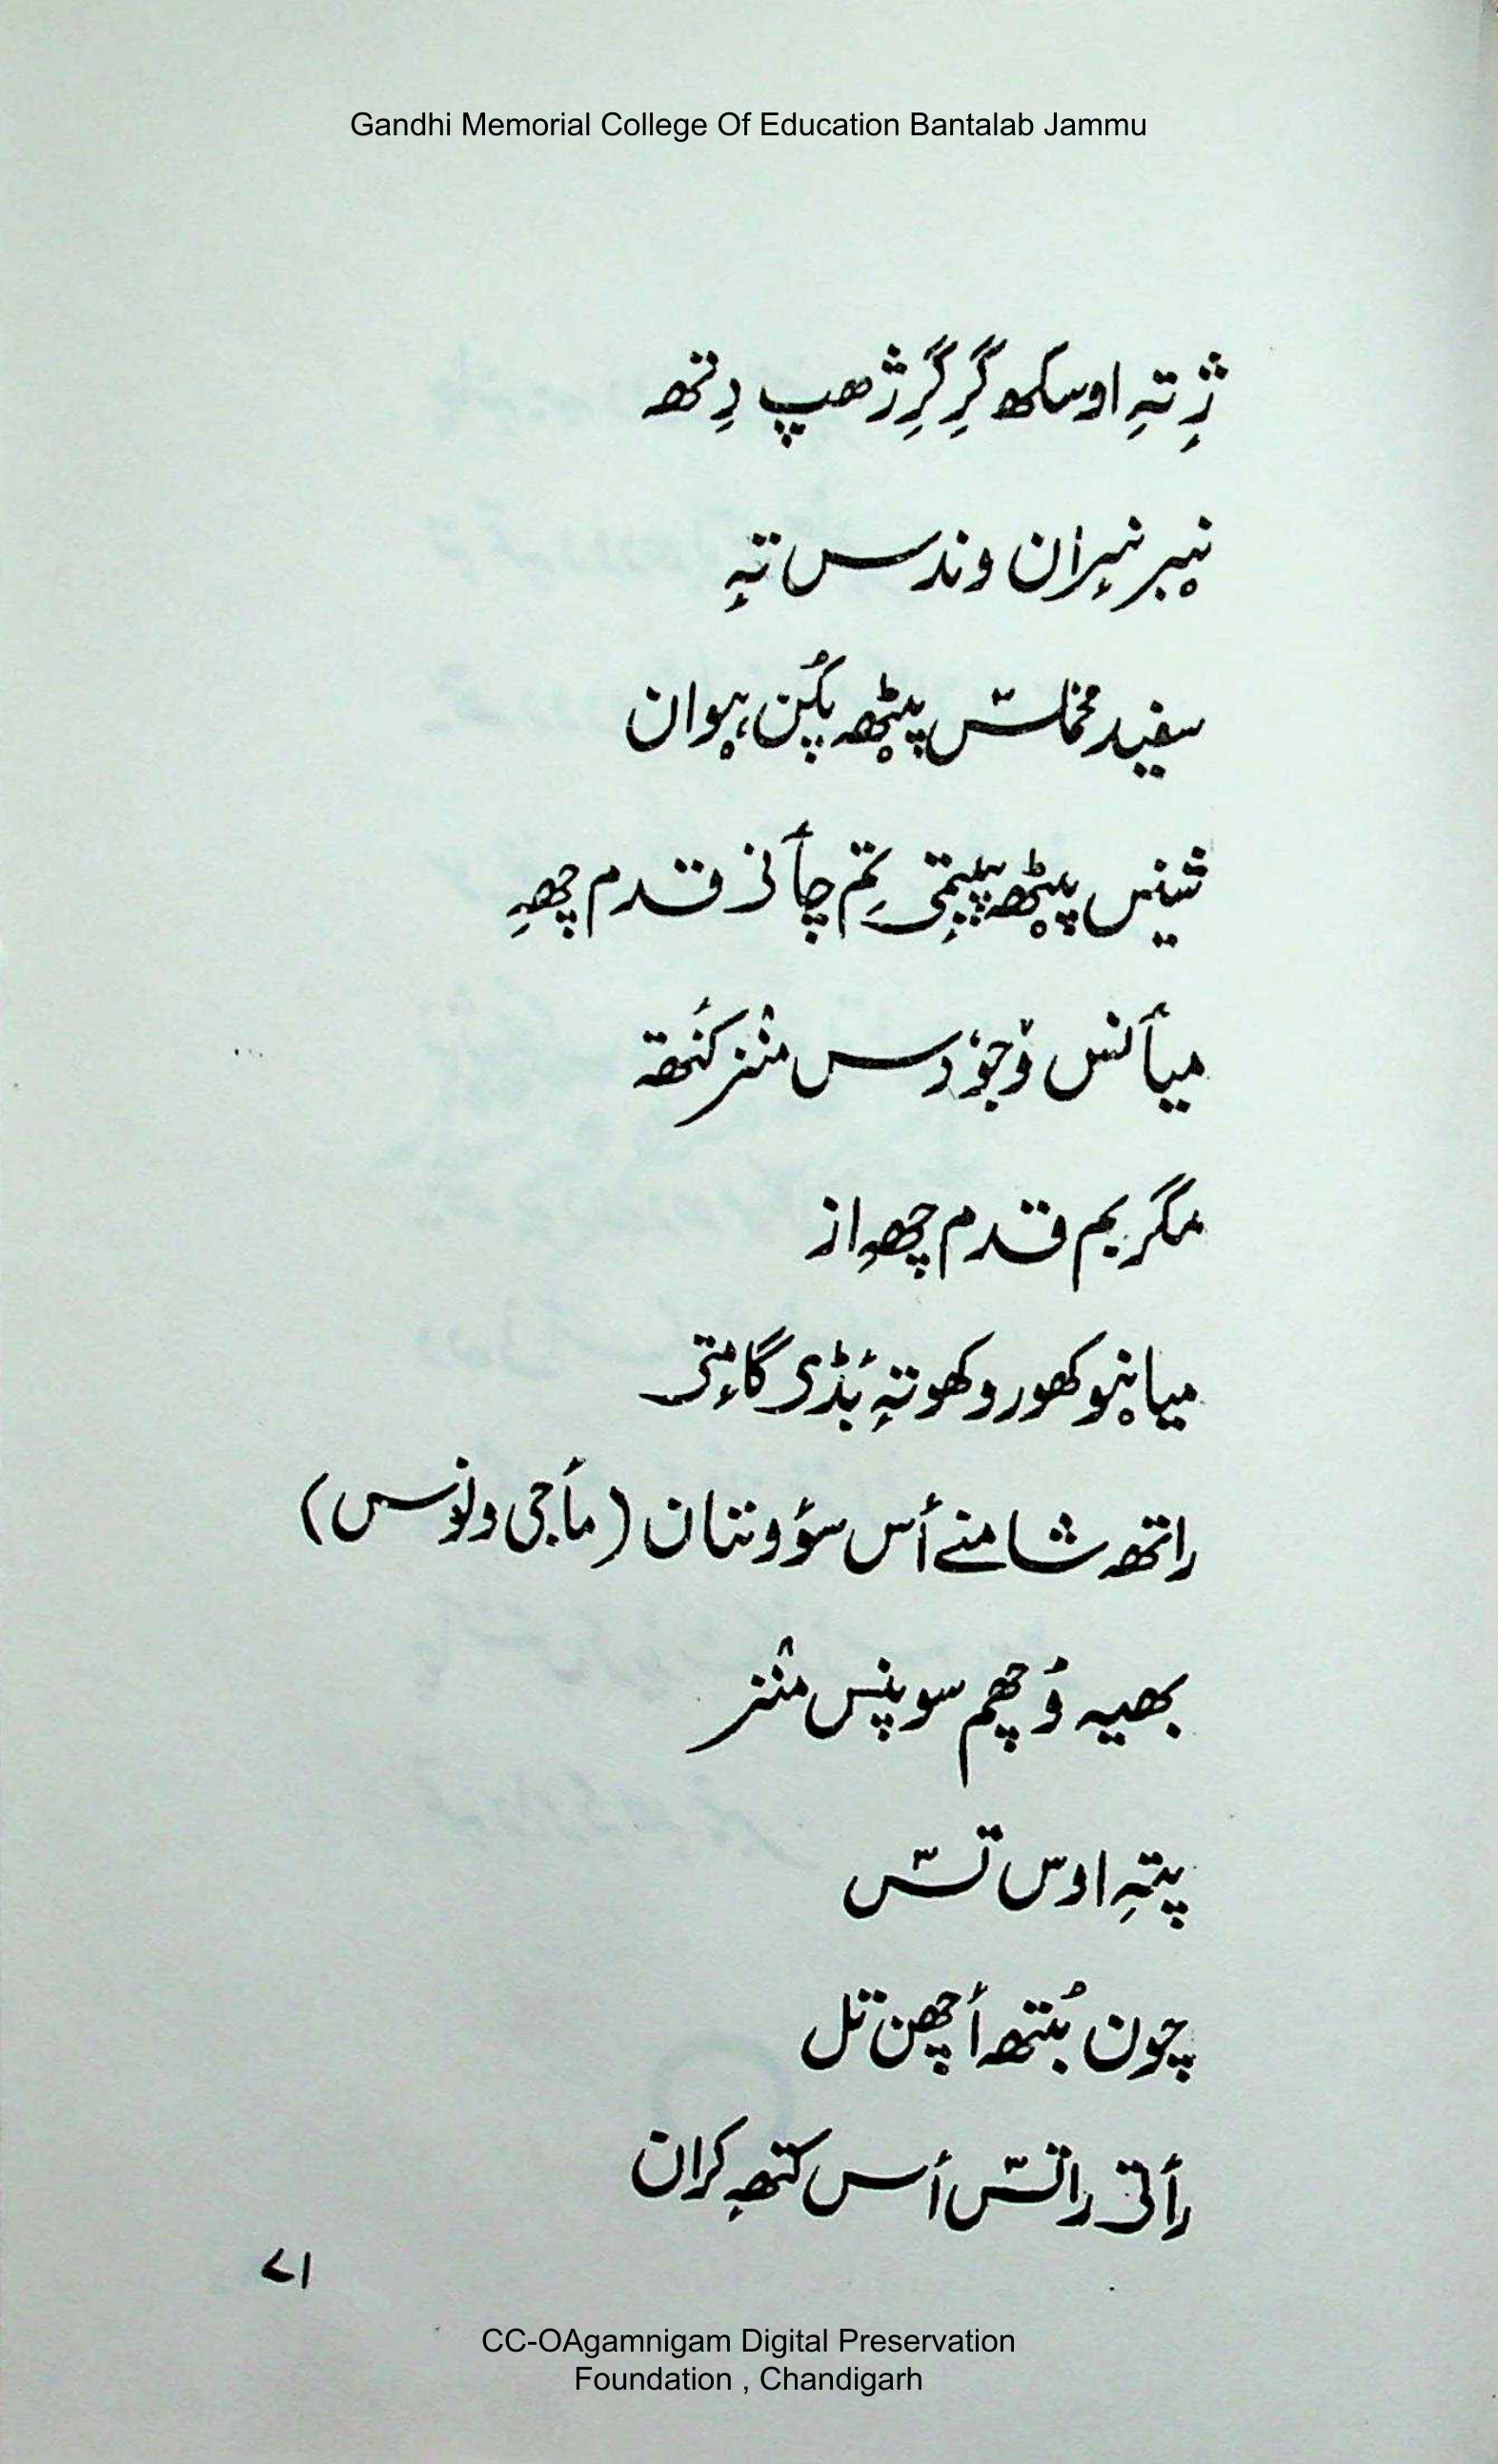 Gandhi Memorial College Of Education Bantalab Jammu
ژِ تہِ اوسکھ گرِ گرِ ژھپ دِتھ
نیٖبر نیران وندس تہِ
سفید مخملس پیٹھ پکُن ہیوان
شینس پیٹھ پییمٕتی تِم چأنی قدم چھہِ
میأنس وۆجوٗدس منٛز کَنتھ
مگر یم قدم چھہِ از
میانیو کھورو کھوتہٕ بَڈی گامٕتی
راتھ شامنے أس سۄ ونان (مأجی ولوٚسس)
بھیہ وُچھم سوپنس منٛز
پتہِ اوس تس
چون بُتھ أچھن تل
رأتی راتس أس کتھہٕ کران
۷۱
CC-OAgamnigam Digital Preservation
Foundation , Chandigarh